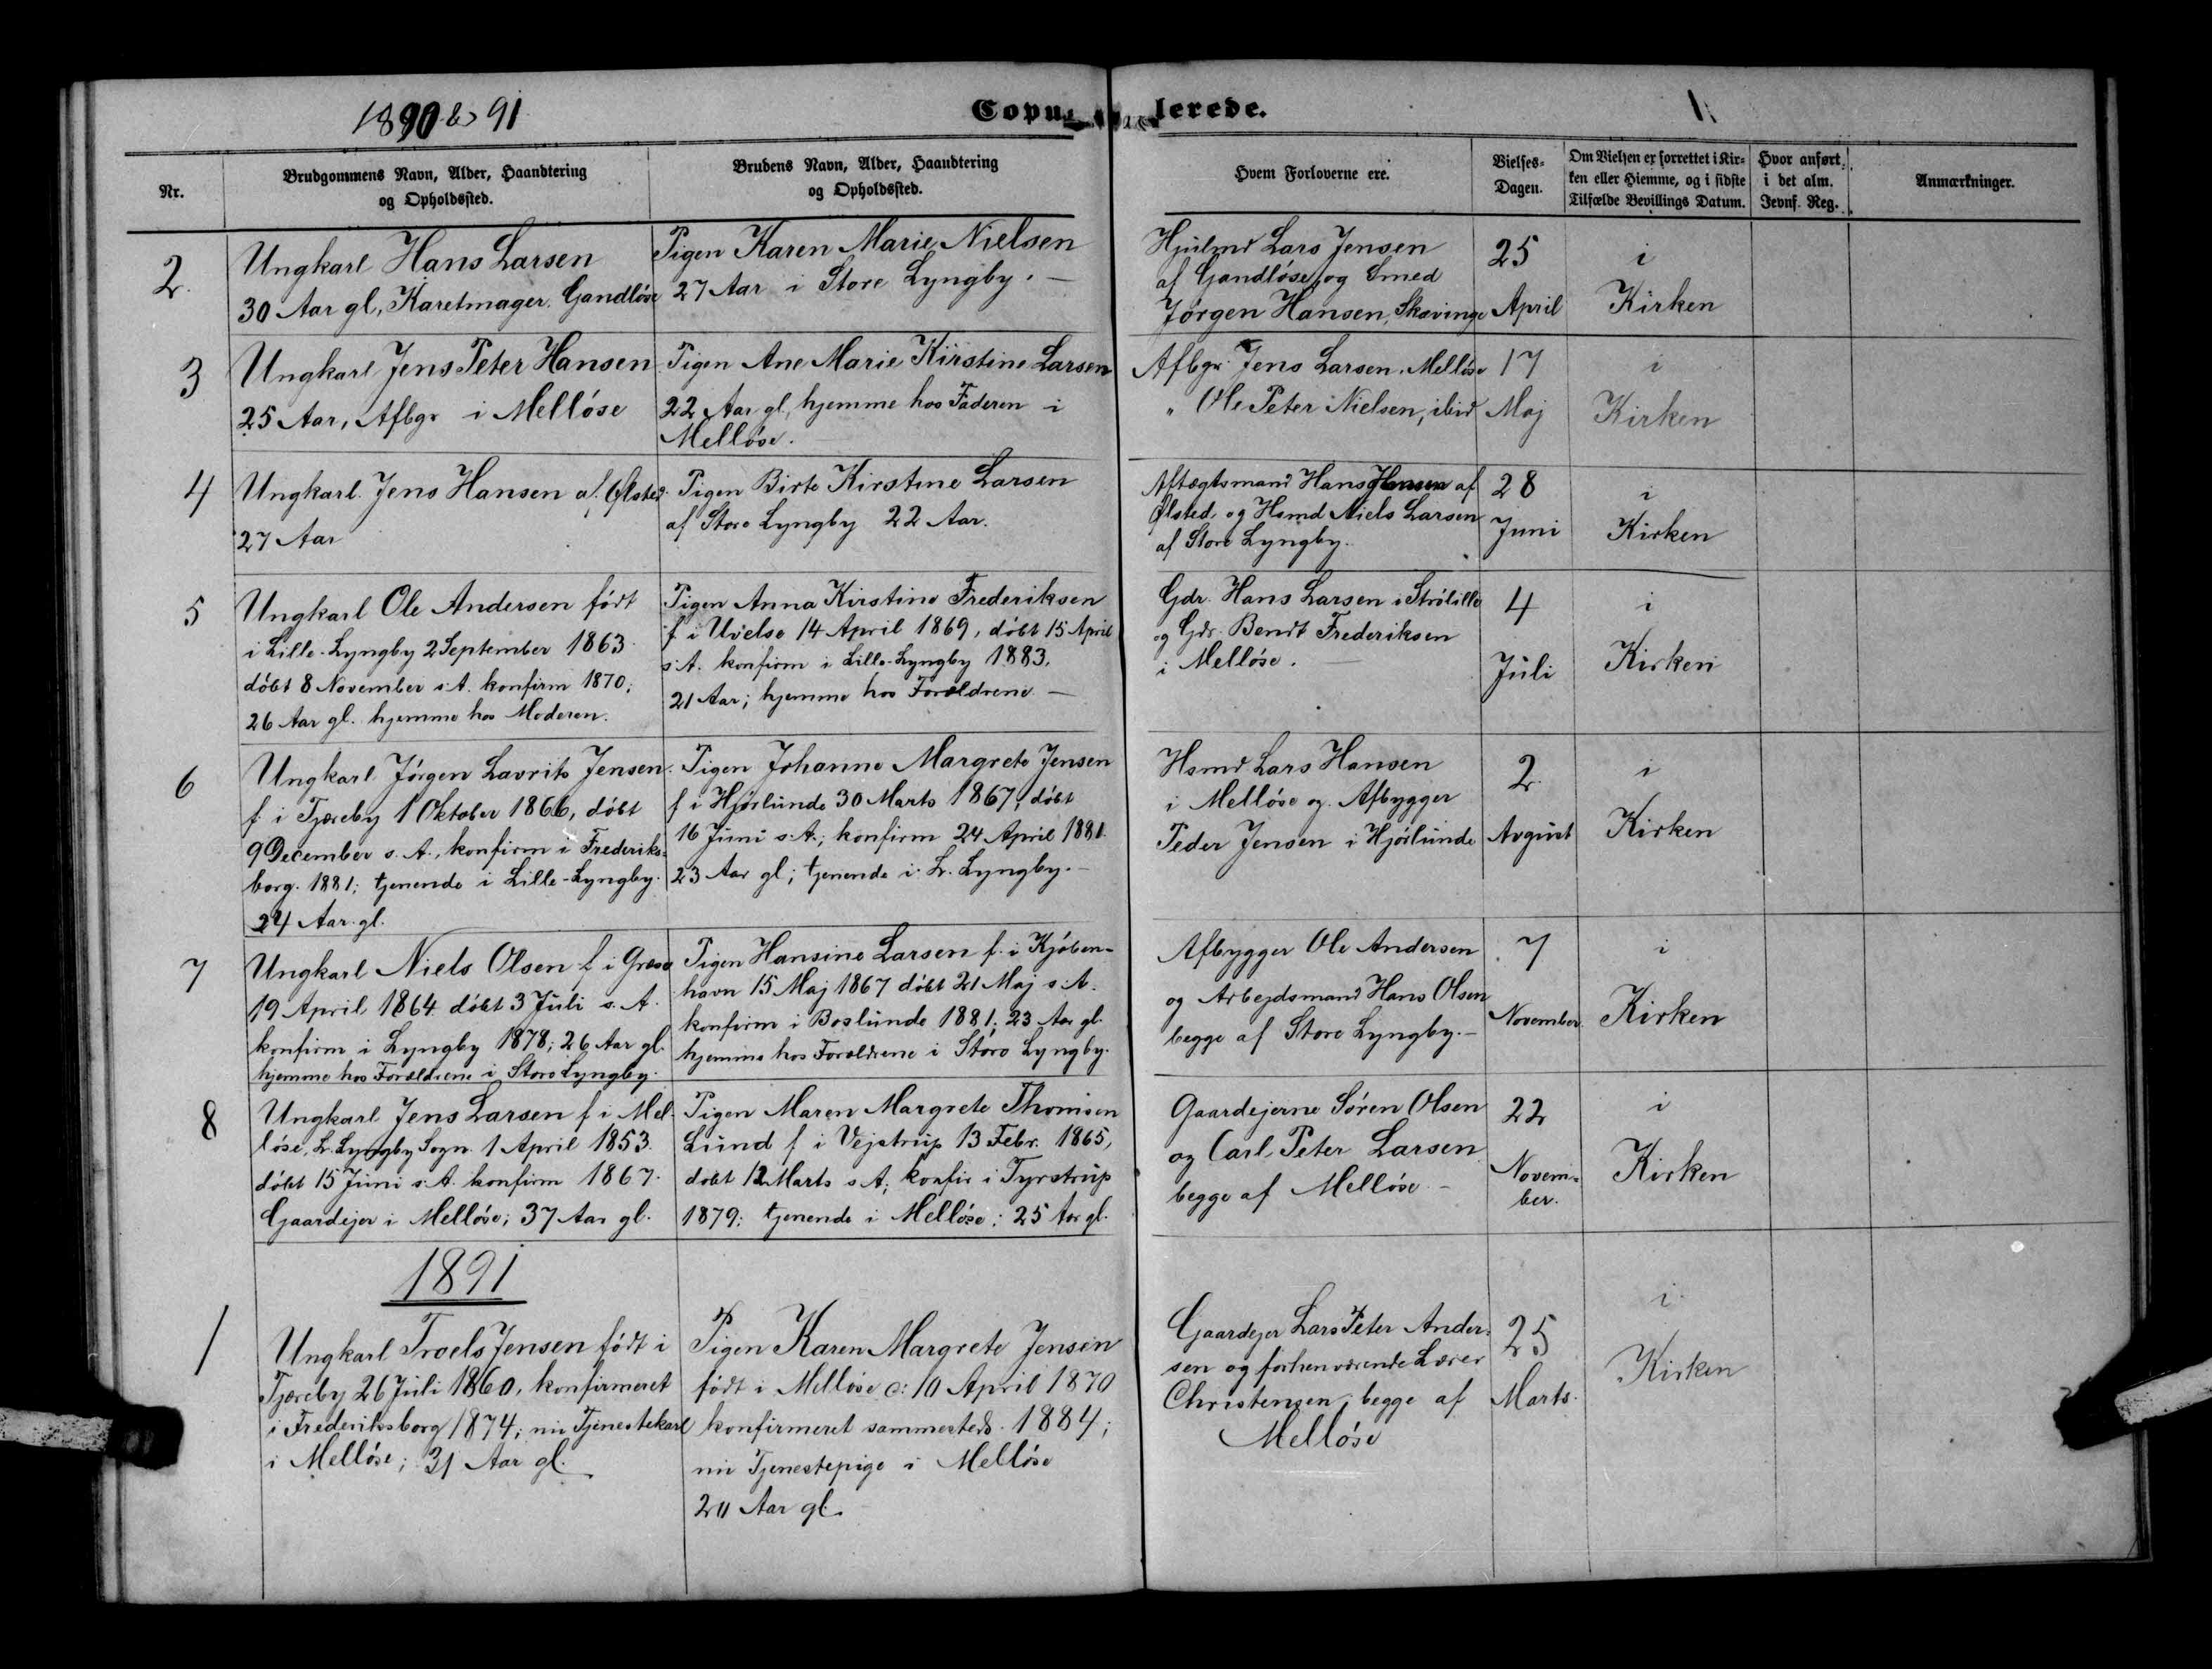 1890 & 91
Copulerede.
1
Nr.
Brudgommens Navn, Alder, Haandtering
og Opholdssted.
Brudens Navn, Alder, Haandtering
og Opholdssted.
Hvem Forloverne ere.
Vielses-
Dagen.
Om Vielsen er forrettet i Kir-
ken eller Hiemme, og i sidste
Tilfælde Bevillings Datum.
Hvor anført
i det alm.
Jevnf. Reg.
Anmærkninger.
2.
Ungkarl Hans Larsen
30 Aar gl., Karetmager. Gandløse
Pigen Karen Marie Nielsen
27 Aar i Store Lyngby. —
Hjulmd Lars Jensen
af Gandløse, og Smed
Jørgen Hansen, Skævinge
25
April
i
Kirken
3
Ungkarl Jens Peter Hansen
25 Aar, Afbgr i Melløse
Pigen Ane Marie Kirstine Larsen
22 Aar gl, hjemme hos Faderen i
Melløse.
Afbgr. Jens Larsen. Melløse
" Ole Peter Nielsen, ibid
17
Maj
i
Kirken
4
Ungkarl. Jens Hansen af Ølsted.
27 Aar
Pigen Birte Kirstine Larsen
af Store Lyngby 22 Aar.
Aftægtsmand Hans Hansen af
Ølsted, og Hsmd Niels Larsen
af Store Lyngby.
28
Juni
i
Kirken
5
Ungkarl Ole Andersen født
i Lille-Lyngby 2 September 1863
døbt 8 November s. A. konfirm 1870;
26 Aar gl. hjemme hos Moderen.
Pigen Anna Kirstine Frederiksen
f i Uvelse 14 April 1869, døbt 15 April
s. A. konfirm i Lille-Lyngby 1883,
21 Aar; hjemme hos Forældrene —
Gdr. Hans Larsen i Strølille
og Gdr. Bendt Frederiksen
i Melløse.
4
Juli
i
Kirken
6
Ungkarl Jørgen Lavrits Jensen
f. i Tjæreby 1 Oktober 1866, døbt
9 December s. A., konfirm i Frederiks-
borg. 1881; tjenende i Lille-Lyngby.
24 Aar. gl.
Pigen Johanne Margrete Jensen
f i Hjørlunde 30 Marts 1867, døbt
16 Juni s. A.; konfirm 24 April 1881
23 Aar gl; tjenende i Lr. Lyngby. —
Hsmd Lars Hansen
i Melløse og Afbygger
Peder Jensen i Hjørlunde
2
Avgust
i
Kirken
7
Ungkarl Niels Olsen f i Græse
19 April 1864 døbt 3 Juli s. A.
konfirm i Lyngby 1878; 26 Aar gl.
hjemme hos Forældrene i Store Lyngby.
Pigen Hansine Larsen f. i Kjøben-
havn 15 Maj 1867 døbt 21 Maj s. A.
konfirm i Boslunde 1881; 23 Aar gl.
hjemme hos Forældrene i Store Lyngby.
Afbygger Ole Andersen
og Arbejdsmand Hans Olsen
begge af Store Lyngby. —
7
November
i
Kirken
8
Ungkarl Jens Larsen f i Mel-
løse, Lr. Lyngby Sogn 1 April 1853
døbt 15 Juni s. A. konfirm 1867.
Gaardejer i Melløse; 37 Aar gl.
Pigen Maren Margrete Thomsen
Lund f i Vejstrup 13 Febr. 1865,
døbt 12 Marts s A; konfir i Tyrstrup
1879; tjenende i Melløse; 25 Aar gl.
Gaardejerne Søren Olsen
og Carl Peter Larsen
begge af Melløse —
22
Novem-
ber.
i
Kirken
1891
1
Ungkarl Troels Jensen født i
Tjæreby 26 Juli 1860, konfirmeret
i Frederiksborg 1874; nu Tjenestekarl
i Melløse; 31 Aar gl.
Pigen Karen Margrete Jensen
født i Melløse d: 10 April 1870
konfirmeret sammesteds 1884;
nu Tjenestepige i Melløse
20 Aar gl.
Gaardejer Lars Peter Ander-
sen og forhenværende Lærer
Christensen, begge af
Melløse
25
Marts
i
Kirken